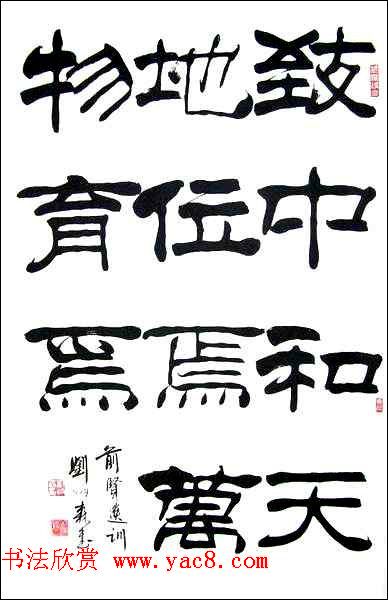 致中和天
地位焉萬
物育焉
前賢遺训
劉炳森書
书法欣赏 www.yac8.com